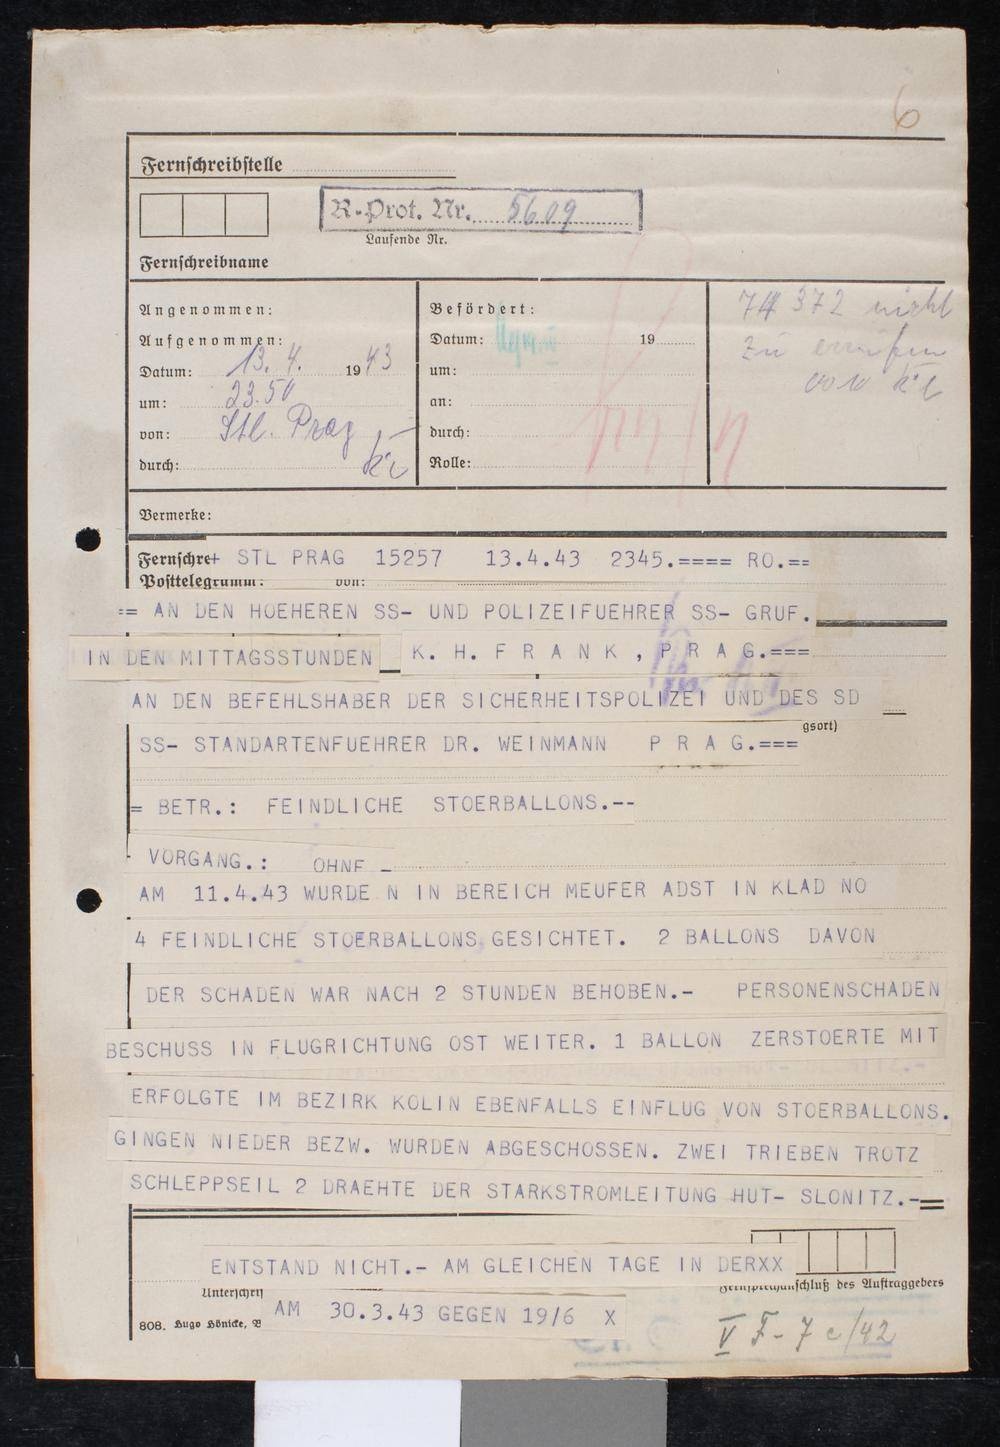 6
Fernschreibstelle
R-Prot. Nr. 5609
Laufende Nr.
Fernschreibname
Angenommen:
Aufgenommen:
Datum: 13. 4. 1943
um: 23.50
von: Stl. Prag
durch:
Befördert:
Datum: 19
um:
an:
durch:
Rolle:
372 nicht
zu
von
Vermerke:
Fernschre+ STL PRAG 15257 13.4.43 2345.==== RO.==
Posttelegramm: von:
== AN DEN HOEHEREN SS- UND POLIZEIFUEHRER SS- GRUF.
IN DEN MITTAGSSTUNDEN K. H. F R A N K , P R A G.===
AN DEN BEFEHLSHABER DER SICHERHEITSPOLIZEI UND DES SD
gsort)
SS- STANDARTENFUEHRER DR. WEINMANN P R A G.===
= BETR.: FEINDLICHE STOERBALLONS.--
VORGANG.: OHNE
AM 11.4.43 WURDE N IN BEREICH MEUFER ADST IN KLAD NO
4 FEINDLICHE STOERBALLONS GESICHTET. 2 BALLONS DAVON
DER SCHADEN WAR NACH 2 STUNDEN BEHOBEN.- PERSONENSCHADEN
BESCHUSS IN FLUGRICHTUNG OST WEITER. 1 BALLON ZERSTOERTE MIT
ERFOLGTE IM BEZIRK KOLIN EBENFALLS EINFLUG VON STOERBALLONS.
GINGEN NIEDER BEZW. WURDEN ABGESCHOSSEN. ZWEI TRIEBEN TROTZ
SCHLEPPSEIL 2 DRAEHTE DER STARKSTROMLEITUNG HUT- SLONITZ.-
ENTSTAND NICHT.- AM GLEICHEN TAGE IN DERXX
Unterschrif
Fernsprechanschluß des Auftraggebers
AM 30.3.43 GEGEN 19/6 X
808. Hugo Hönicke, B
V F- 7 c/42